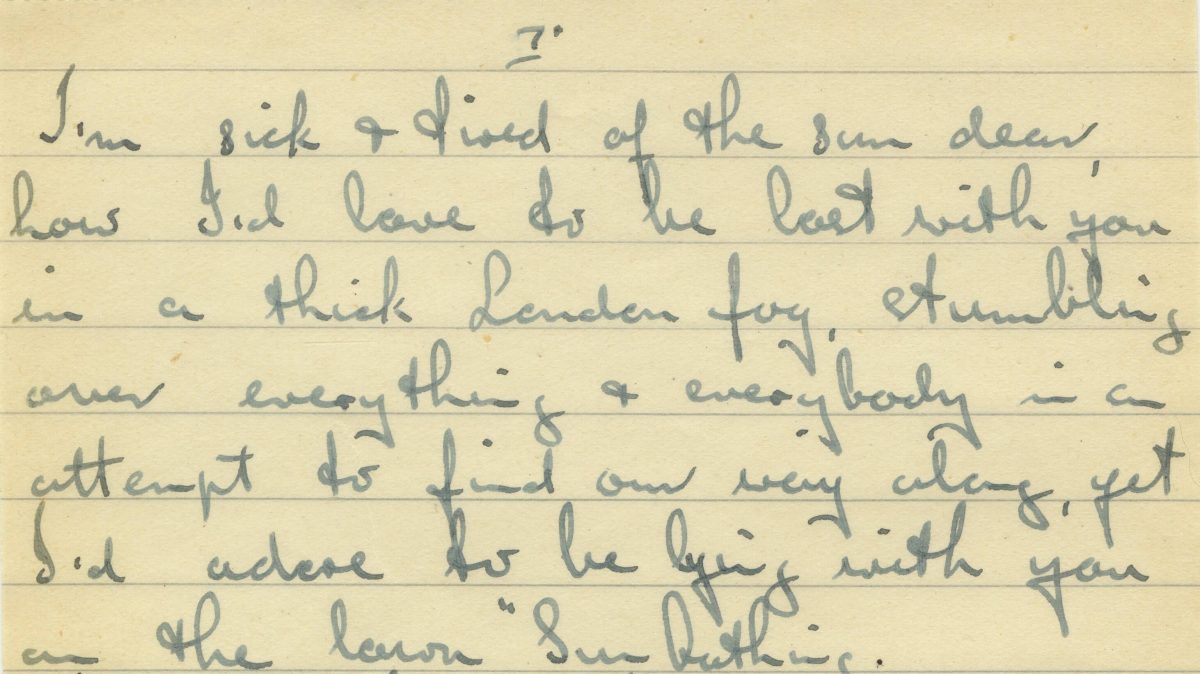 7.
I'm sick & tired of the sun dear,
how I'd love to be lost with you
in a thick London fog, stumbling
over everything & everybody in an
attempt to find our way along, yet
I'd adore to be lying with you
on the lawn "Sun Bathing.